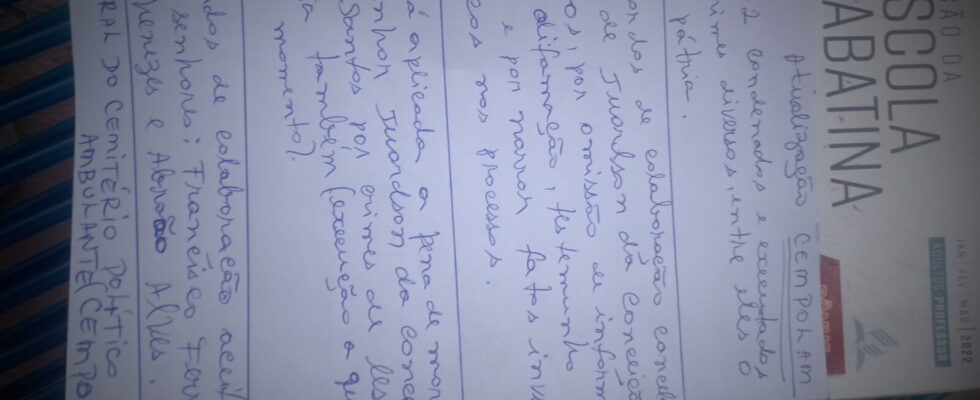 JAN | FEV | MAR | 2022
ADULTOS PROFESSOR
ÃO DA
SCOLA
ABATINA
Atualização CEMPOLAM
2 condenados e executados
rimes diversos, entre eles o
pátria.
ordos de colaboração cancel
de Juarlson da Conceição
os, por omissão de inform
difamação, testemunho
e por narrar fatos inv
cos nos processos.
á aplicada a pena de mor
nhor Juardson da Conce
Santos por crimes de les
ia também (execução a qu
momento).
ados de colaboração aceit
senhores: Francisco Ferr
enezes e Abraão Alves.
RAL DO CEMITÉRIO POLÍTICO
AMBULANTE (CEMPO